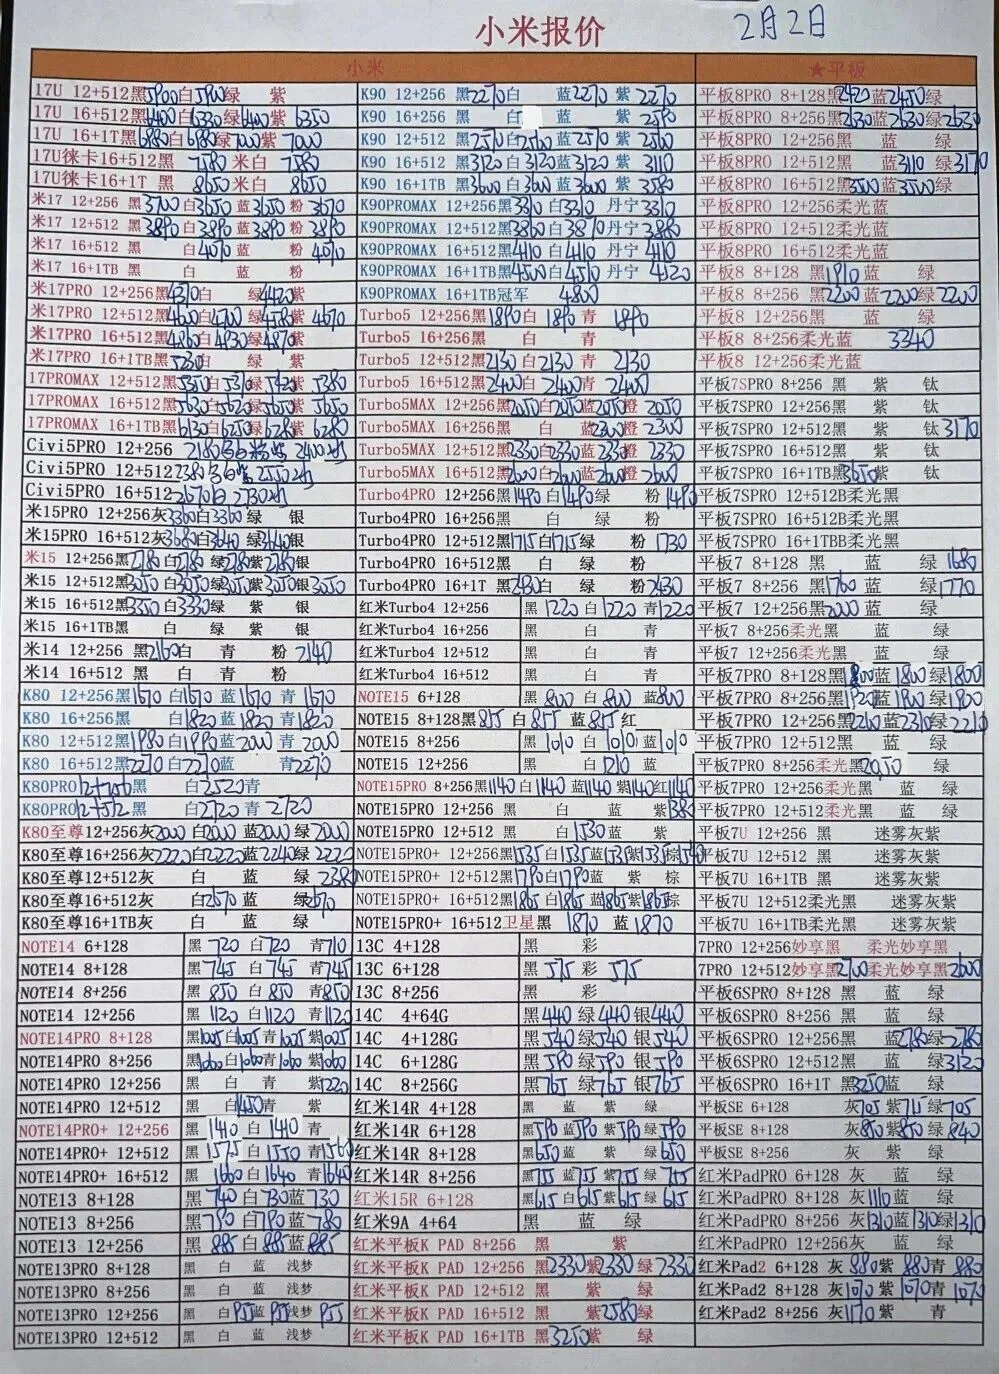 小米报价 2月2日
小米 ★平板
17U 12+512黑5900白5900绿 紫
17U 16+512黑6400白6330绿6400紫6350
17U 16+1T黑6980白6980绿7000紫7000
17U徕卡16+512黑 7580 米白 7580
17U徕卡16+1T 黑 8650 米白 8650
米17 12+256 黑3700白3650蓝3650粉3670
米17 12+512 黑3890白3890蓝3890粉3890
米17 16+512 黑 白4070蓝 粉4070
米17 16+1TB 黑 白 蓝 粉
米17PRO 12+256黑4370白 绿4420紫
米17PRO 12+512黑4600白4700绿4580紫4670
米17PRO 16+512黑4860白4930绿4870紫
米17PRO 16+1TB黑5230白 绿 紫
17PROMAX 12+512黑5350白5310绿5420紫5380
17PROMAX 16+512黑5630白5620绿5650紫5650
17PROMAX 16+1TB黑6130白6250绿6280紫6280
Civi5PRO 12+256
Civi5PRO 12+512
Civi5PRO 16+512
米15PRO 12+256灰3360白3360绿 银
米15PRO 16+512灰3680白3640绿3640银
米15 12+256黑2780白2780绿2780紫2780银
米15 12+512黑3050白3050绿3050紫3050银3050
米15 16+512黑3350白3330绿 紫 银
米15 16+1TB黑 白 绿 紫 银
米14 12+256 黑2160白 青 粉2140
米14 16+512 黑 白 青 粉
K80 12+256黑1670白1670蓝1670青1670
K80 16+256黑 白1820蓝1820青1820
K80 12+512黑1980白1990蓝2000青2000
K80 16+512黑2270白2270蓝 青2270
K80PRO12+256黑 白2520青
K80PRO12+512黑 白2720青2720
K80至尊12+256灰2000白2000蓝2000绿2000
K80至尊16+256灰2220白2220蓝2240绿2220
K80至尊12+512灰 白 蓝 绿2380
K80至尊16+512灰 白2670蓝 绿2670
K80至尊16+1TB灰 白 蓝 绿
NOTE14 6+128 黑720白720青710
NOTE14 8+128 黑745白745青745
NOTE14 8+256 黑850白850青850
NOTE14 12+256 黑1120白1120青1120
NOTE14PRO 8+128 黑1005白1005青1025紫1005
NOTE14PRO 8+256 黑1060白1060青1060紫1060
NOTE14PRO 12+256 黑 白 青 紫1220
NOTE14PRO 12+512 黑 白1450青 紫
NOTE14PRO+ 12+256 黑1410白1410青
NOTE14PRO+ 12+512 黑1575白1550青1560
NOTE14PRO+ 16+512 黑1660白1640青1640
NOTE13 8+128 黑740白730蓝730
NOTE13 8+256 黑790白790蓝780
NOTE13 12+256 黑885白885蓝885
NOTE13PRO 8+128 黑 白 蓝 浅梦
NOTE13PRO 8+256 黑 白 蓝 浅梦
NOTE13PRO 12+256 黑 白955蓝955浅梦955
NOTE13PRO 12+512 黑 白 蓝 浅梦
K90 12+256 黑2270白 蓝2270紫2270
K90 16+256 黑 白 蓝 紫2590
K90 12+512 黑2570白2560蓝2570紫2560
K90 16+512 黑3120白3120蓝3120紫3110
K90 16+1TB 黑3600白3600蓝3600紫3580
K90PROMAX 12+256黑3310白3310丹宁3310
K90PROMAX 12+512黑3860白3870丹宁3880
K90PROMAX 16+512黑4110白4110丹宁4110
K90PROMAX 16+1TB黑4500白4510丹宁4520
K90PROMAX 16+1TB冠军 4800
Turbo5 12+256黑1890白1890青1890
Turbo5 16+256黑 白 青
Turbo5 12+512黑2130白2130青2130
Turbo5 16+512黑2400白2400青2400
Turbo5MAX 12+256黑2050白2050蓝2050橙2050
Turbo5MAX 16+256黑 白 蓝2300橙2300
Turbo5MAX 12+512黑2330白2330蓝2330橙2330
Turbo5MAX 16+512黑2600白2600蓝2600橙2600
Turbo4PRO 12+256黑1490白1490绿 粉1490
Turbo4PRO 16+256黑 白 绿 粉
Turbo4PRO 12+512黑1715白1715绿 粉1730
Turbo4PRO 16+512黑 白 绿 粉
Turbo4PRO 16+1T 黑2430白 绿 粉2430
红米Turbo4 12+256 黑1220白1220青1220
红米Turbo4 16+256 黑 白 青
红米Turbo4 12+512 黑 白 青
NOTE15 6+128 黑800白800蓝800
NOTE15 8+128黑815白815蓝815红
NOTE15 8+256 黑1010白1010蓝1010
NOTE15 12+256 黑 白1210蓝
NOTE15PRO 8+256黑1140白1140蓝1140紫1140红1140
NOTE15PRO 12+256 黑 白 蓝 紫1380
NOTE15PRO 12+512 黑 白1530蓝 紫
NOTE15PRO+ 12+256黑1535白1535蓝1535紫1535棕1540
NOTE15PRO+ 12+512黑1790白1790蓝 紫 棕
NOTE15PRO+ 16+512黑1865白1865蓝1865紫1865棕
NOTE15PRO+ 16+512卫星黑 1870 蓝 1870
13C 4+128 黑 彩
13C 6+128 黑575彩575
13C 8+256 黑 彩
14C 4+64G 黑440绿440银440
14C 4+128G 黑540绿540银540
14C 6+128G 黑590绿590银590
14C 8+256G 黑765绿765银765
红米14R 4+128 黑 蓝 紫 绿
红米14R 6+128 黑590蓝590紫590绿590
红米14R 8+128 黑650蓝 紫650绿650
红米14R 8+256 黑755蓝755紫755绿755
红米15R 6+128 黑615白615紫615绿615
红米9A 4+64 黑 蓝 绿
红米平板K PAD 8+256 黑 紫
红米平板K PAD 12+256 黑2330紫2330绿2330
红米平板K PAD 12+512 黑 紫 绿
红米平板K PAD 16+512 黑 紫2580绿
红米平板K PAD 16+1TB 黑3250紫 绿
平板8PRO 8+128黑2420蓝2450绿
平板8PRO 8+256黑2630蓝2630绿2630
平板8PRO 12+256黑 蓝 绿
平板8PRO 12+512黑 蓝3110绿3170
平板8PRO 16+512黑3500蓝3500绿
平板8PRO 12+256柔光蓝
平板8PRO 12+512柔光蓝
平板8PRO 16+512柔光蓝
平板8 8+128 黑1910蓝 绿
平板8 8+256 黑2200蓝2200绿2200
平板8 12+256黑 蓝 绿
平板8 8+256柔光蓝 3340
平板8 12+256柔光蓝
平板7SPRO 8+256 黑 紫 钛
平板7SPRO 12+256黑 紫 钛
平板7SPRO 12+512黑 紫 钛3170
平板7SPRO 16+1TB黑3650紫 钛
平板7SPRO 12+512B柔光黑
平板7SPRO 16+512B柔光黑
平板7SPRO 16+1TBB柔光黑
平板7 8+128 黑 蓝 绿1680
平板7 8+256 黑1760蓝 绿1770
平板7 12+256黑2000蓝 绿
平板7 8+256柔光黑 蓝 绿
平板7 12+256柔光黑 蓝 绿
平板7PRO 8+128黑1800蓝1800绿1800
平板7PRO 8+256黑1920蓝1900绿1900
平板7PRO 12+256黑2210蓝2310绿2210
平板7PRO 12+512黑 蓝 绿
平板7PRO 8+256柔光黑2050 绿
平板7PRO 12+256柔光 黑 蓝 绿
平板7PRO 12+512柔光黑 蓝 绿
平板7U 12+256 黑 迷雾灰紫
平板7U 12+512 黑 迷雾灰紫
平板7U 16+1TB 黑 迷雾灰紫
平板7U 12+512柔光黑 迷雾灰紫
平板7U 16+1TB柔光黑 迷雾灰紫
7PRO 12+256妙享黑 柔光妙享黑
7PRO 12+512妙享黑2700柔光妙享黑2600
平板6SPRO 8+128 黑 蓝 绿
平板6SPRO 8+256黑 蓝 绿
平板6SPRO 12+256黑 蓝2780绿2780
平板6SPRO 12+512黑 蓝 绿3120
平板6SPRO 16+1T 黑3250蓝 绿
平板SE 6+128 灰705紫715绿705
平板SE 8+128 灰850紫850绿840
平板SE 8+256 灰 紫 绿
红米PadPRO 6+128 灰 蓝 绿
红米PadPRO 8+128 灰1110蓝 绿
红米PadPRO 8+256 灰1310蓝1310绿1310
红米PadPRO 12+256灰 蓝 绿
红米Pad2 6+128 灰880紫880青880
红米Pad2 8+128 灰1070紫1070青1070
红米Pad2 8+256 灰1170紫 青